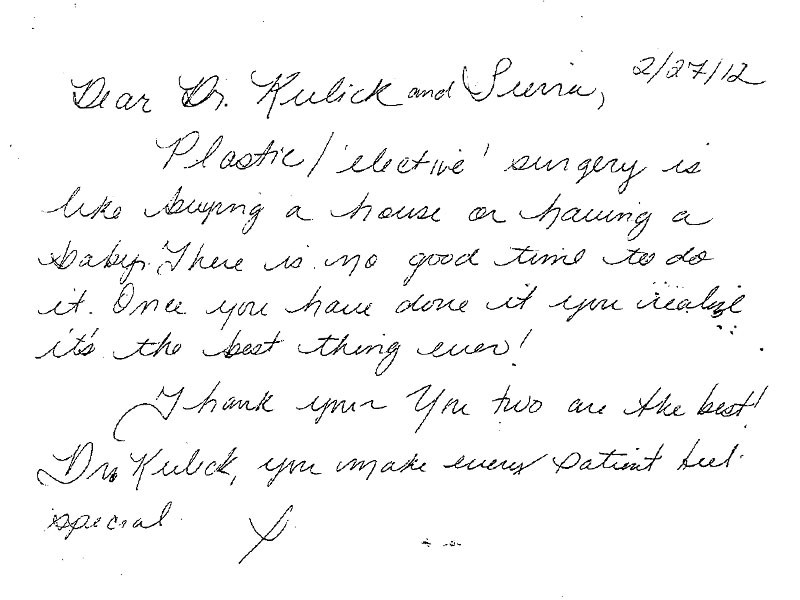 2/27/12
Dear Dr. Kulick and Sierra,
Plastic/'elective' surgery is
like buying a house or having a
baby. There is no good time to do
it. Once you have done it you realize
it's the best thing ever!
Thank you You two are the best!
Dr. Kulick, you make every patient feel
special